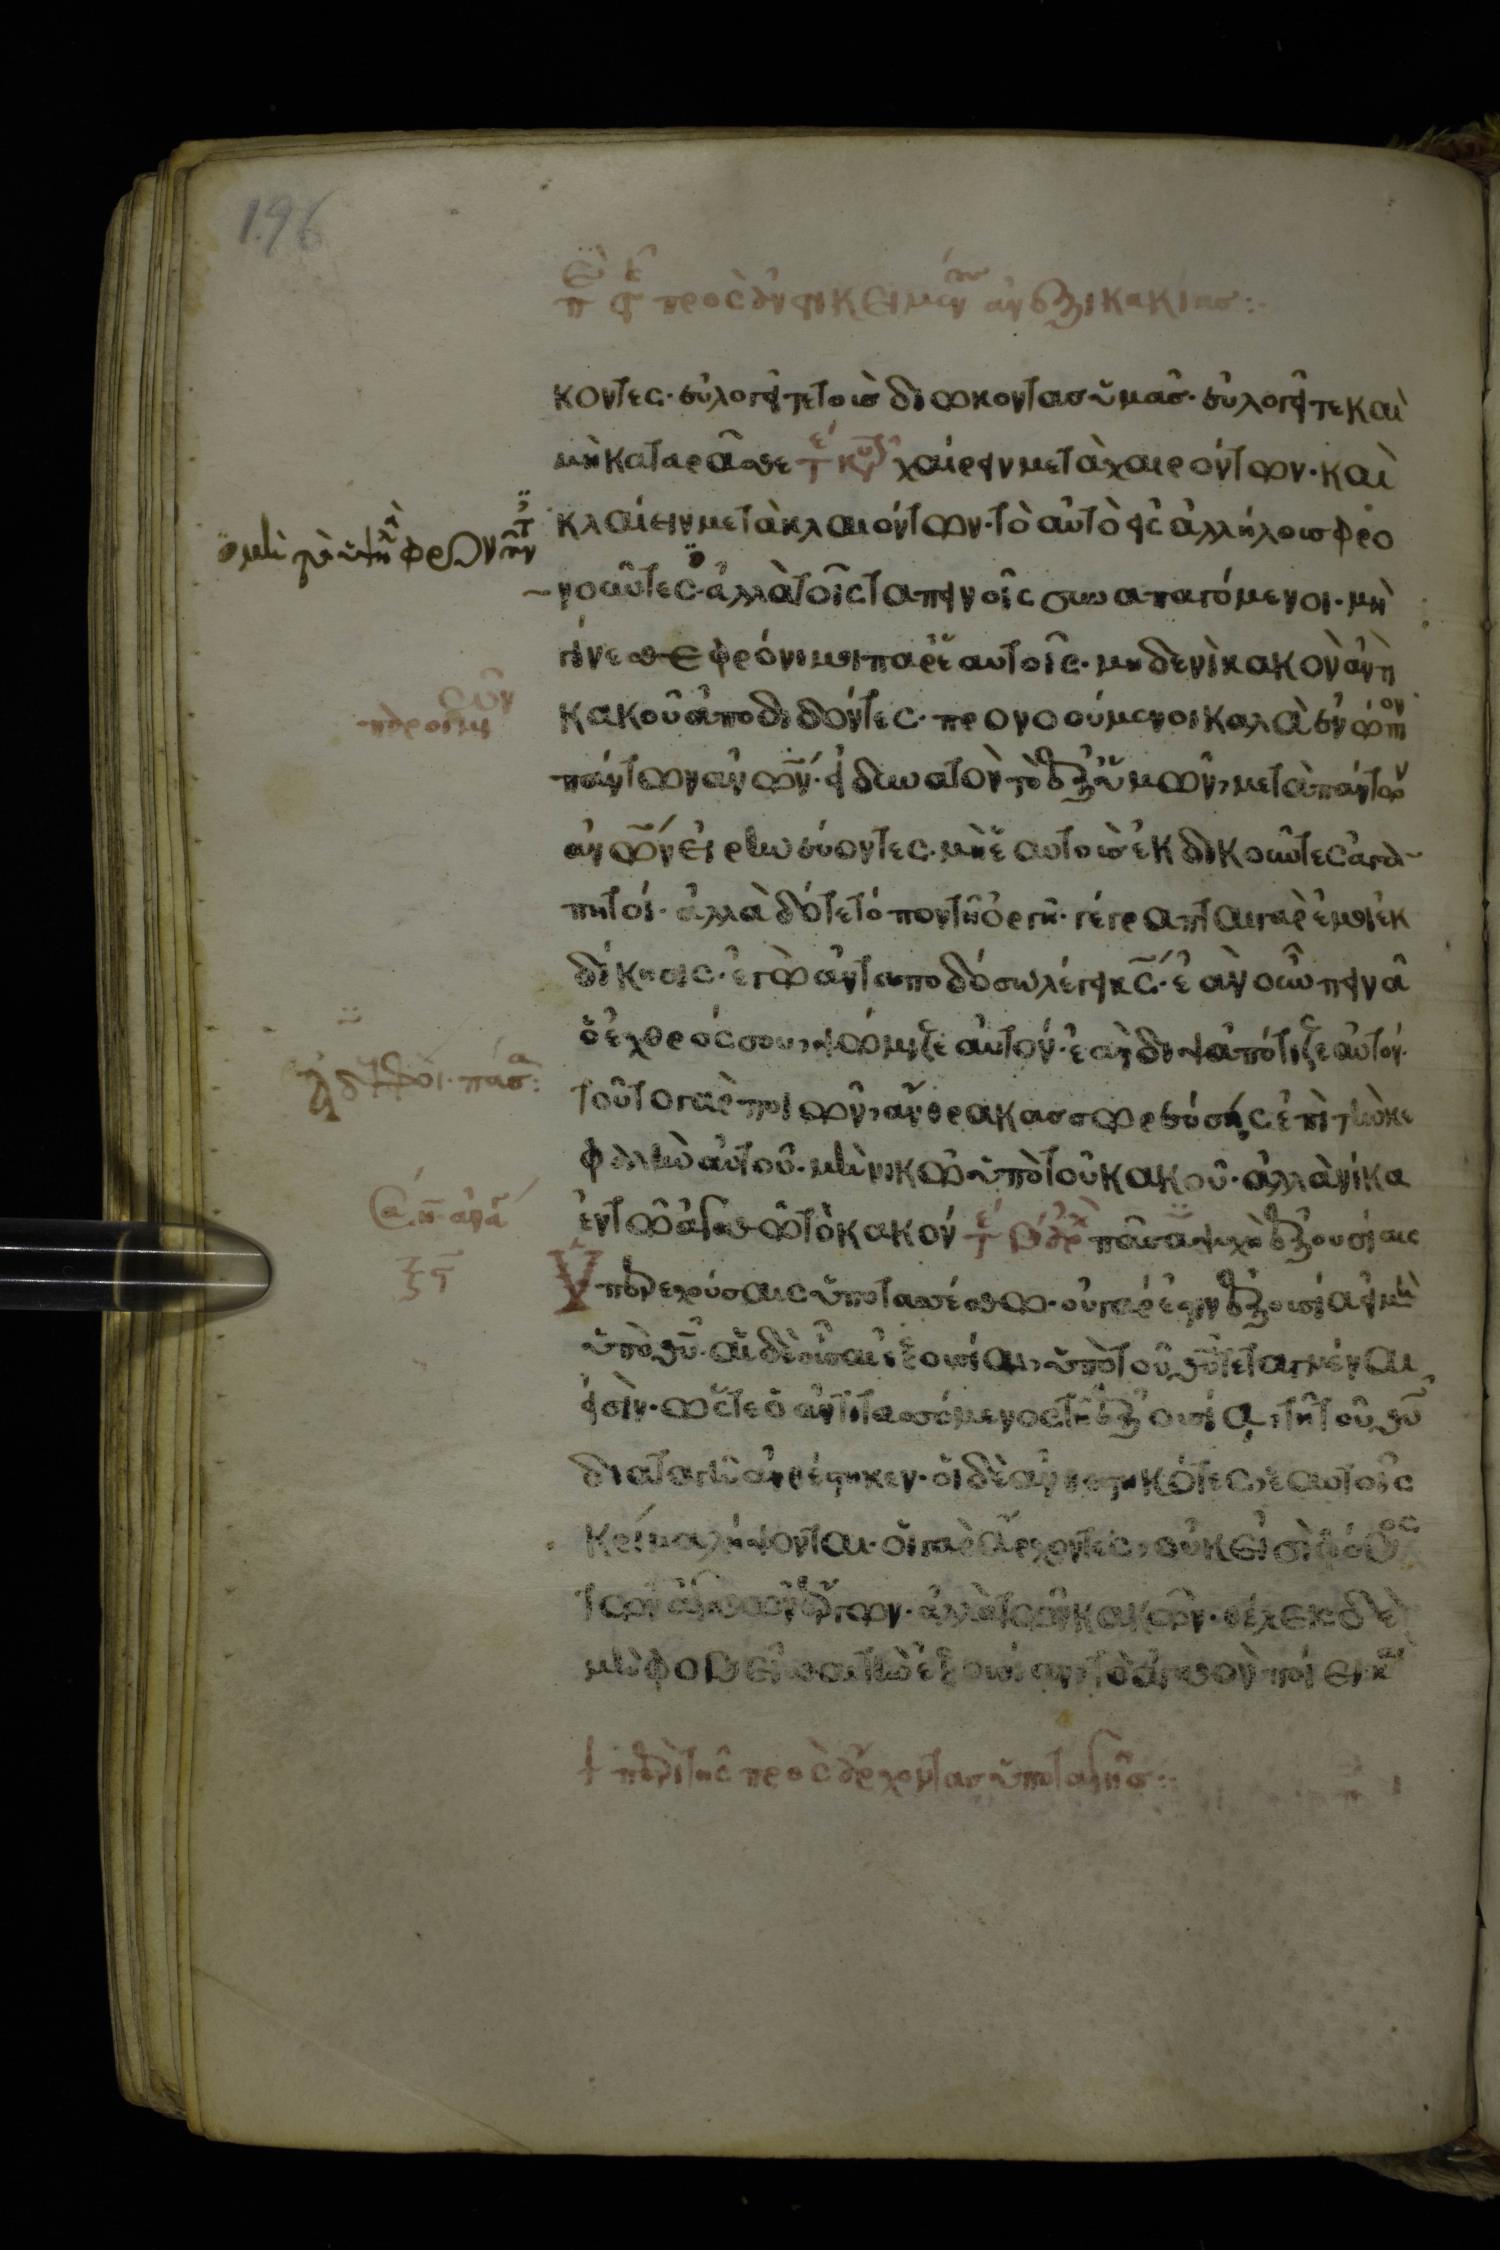 196
πρὸς ἀντικειμένων ἀνεξικακίας:
κοντες· εὐλογεῖτε τοὺς διώκοντας ὑμᾶς· εὐλογεῖτε καὶ
μὴ καταρᾶσθε χαίρειν μετὰ χαιρόντων· καὶ
κλαίειν μετὰ κλαιόντων· τὸ αὐτὸ εἰς ἀλλήλους φρο
μὴ τὰ ὑψηλὰ φρονοῦντες
νοοῦντες· ἀλλὰ τοῖς ταπεινοῖς συναπαγόμενοι· μὴ
γίνεσθε φρόνιμοι παρ' ἑαυτοῖς· μηδενὶ κακὸν ἀντὶ
κακοῦ ἀποδιδόντες· προνοούμενοι καλὰ ἐνώπιον
πάντων ἀνων· εἰ δυνατὸν τὸ ἐξ ὑμῶν, μετὰ πάντων
ἀνων εἰρηνεύοντες· μὴ ἑαυτοὺς ἐκδικοῦντες ἀγα
πητοί· ἀλλὰ δότε τόπον τῇ ὀργῇ· γέγραπται γὰρ ἐμοὶ ἐκ
δίκησις· ἐγὼ ἀνταποδώσω λέγει κς· ἐὰν οὖν πεινᾶ
ὁ ἐχθρός σου, ψώμιζε αὐτόν· ἐὰν διψᾶ πότιζε αὐτόν·
τοῦτο γὰρ ποιῶν, ἄνθρακας σωρεύσῃς ἐπὶ τὴν κε
φαλὴν αὐτοῦ· μὴ νικῶ ὑπὸ τοῦ κακοῦ· ἀλλὰ νίκα
ἐν τῷ ἀγαθῷ τὸ κακόν πᾶσα ψυχὴ ἐξουσίαις
Ὑπερεχούσαις ὑποτασσέσθω· οὐ γάρ ἐστιν ἐξουσία εἰ μὴ
ὑπὸ θυ· αἱ δὲ οὖσαι ἐξουσίαι, ὑπὸ τοῦ θυ τεταγμέναι
εἰσίν· ὥστε ὁ ἀντιτασσόμενος τῇ ἐξουσίᾳ, τῇ τοῦ θυ
διαταγῇ ἀνθέστηκεν· οἱ δὲ ἀνθεστηκότες, ἑαυτοῖς
κρίμα λήψονται· οἱ γὰρ ἄρχοντες, οὐκ εἰσὶ φόβος
τῶν ἀγαθῶν ἔργων· ἀλλὰ τῶν κακῶν· θέλεις δὲ
μὴ φοβεῖσθαι τὴν ἐξουσίαν, τὸ ἀγαθὸν ποίει καὶ
περὶ τῆς πρὸς ἄρχοντας ὑποταγῆς: